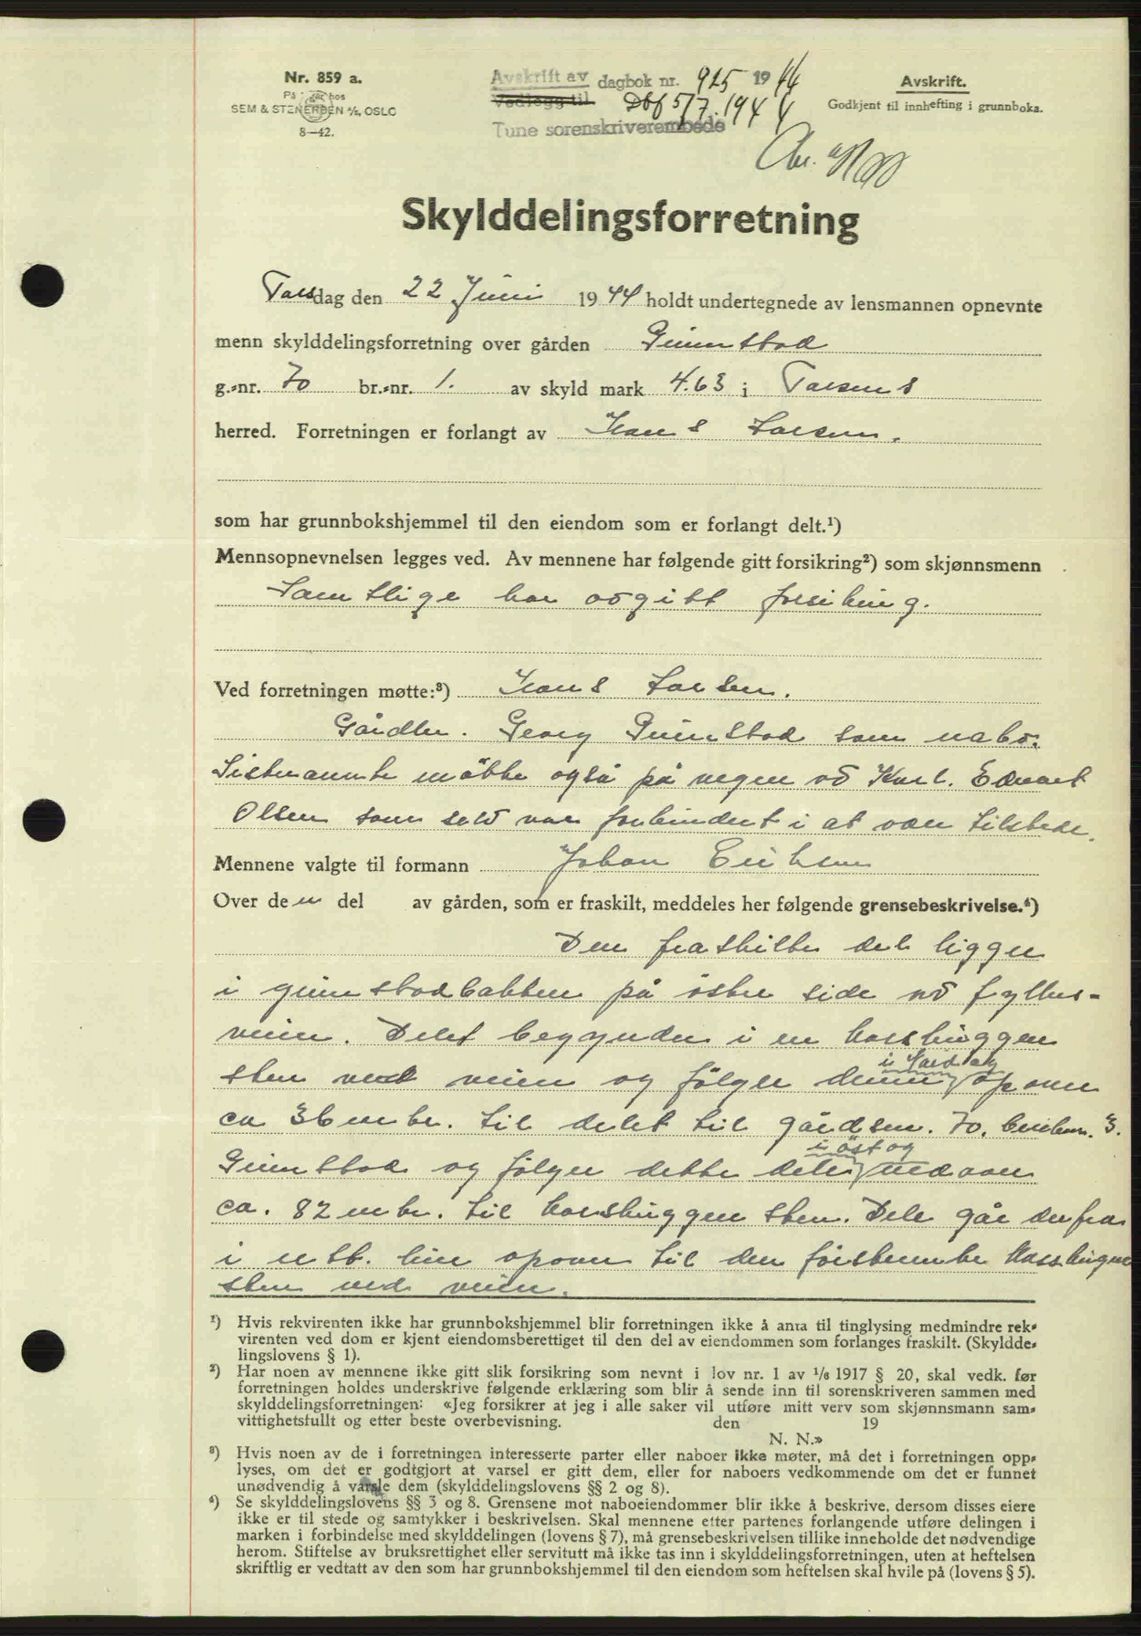 Nr. 859 a.
På lager hos
SEM & STENERSEN A/S, OSLO
8—42.
Avskrift av dagbok nr. 925 1944
Vedlegg til Dbf 5/7.1944
Tune sorenskriverembede
Avskrift.
Godkjent til innhefting i grunnboka.
Skylddelingsforretning
Torsdag den 22 Juni 1944 holdt undertegnede av lensmannen opnevnte
menn skylddelingsforretning over gården Grimstad
g.-nr. 70 br.-nr. 1. av skyld mark 4.63 i Torsnes
herred. Forretningen er forlangt av Hans Larsen.
som har grunnbokshjemmel til den eiendom som er forlangt delt.¹)
Mennsopnevnelsen legges ved. Av mennene har følgende gitt forsikring²) som skjønnsmenn
Samtlige har avgitt forsikring.
Ved forretningen møtte:³) Hans Larsen.
Gårdbr. Georg Grimstad som nabo.
Sistnevnte møtte også på vegne av Karl. Edvart
Olsen som selv var forhindert i at være tilstede.
Mennene valgte til formann Johan Eriksen
Over den del av gården, som er fraskilt, meddeles her følgende grensebeskrivelse.⁴)
Den fraskilte del ligger
i grimstadbakken på østre side av fylkes-
veien. Delet begynder i en korshuggen
i Nord og
sten ved veien og følger denne opover
ca 36 mtr. til delet til gårdsnr. 70. bruksnr. 3.
i öst og
Grimstad og følger dette dele nedover
ca. 82 mtr. til korshuggen sten. Dele går derfra
i rett linie opover til den førstnevnte korshugne
sten ved veien.
¹) Hvis rekvirenten ikke har grunnbokshjemmel blir forretningen ikke å anta til tinglysing medmindre rek-
virenten ved dom er kjent eiendomsberettiget til den del av eiendommen som forlanges fraskilt. (Skyldde-
lingslovens § 1).
²) Har noen av mennene ikke gitt slik forsikring som nevnt i lov nr. 1 av 1/6 1917 § 20, skal vedk. før
forretningen holdes underskrive følgende erklæring som blir å sende inn til sorenskriveren sammen med
skylddelingsforretningen: «Jeg forsikrer at jeg i alle saker vil utføre mitt verv som skjønnsmann sam-
vittighetsfullt og etter beste overbevisning. den 19
N. N.»
³) Hvis noen av de i forretningen interesserte parter eller naboer ikke møter, må det i forretningen opp-
lyses, om det er godtgjort at varsel er gitt dem, eller for naboers vedkommende om det er funnet
unødvendig å varsle dem (skylddelingslovens §§ 2 og 8).
⁴) Se skylddelingslovens §§ 3 og 8. Grensene mot naboeiendommer blir ikke å beskrive, dersom disses eiere
ikke er til stede og samtykker i beskrivelsen. Skal mennene etter partenes forlangende utføre delingen i
marken i forbindelse med skylddelingen (lovens § 7), må grensebeskrivelsen tillike inneholde det nødvendige
herom. Stiftelse av bruksrettighet eller servitutt må ikke tas inn i skylddelingsforretningen, uten at heftelsen
skriftlig er vedtatt av den som har grunnbokshjemmel til den eiendom som heftelsen skal hvile på (lovens § 5).